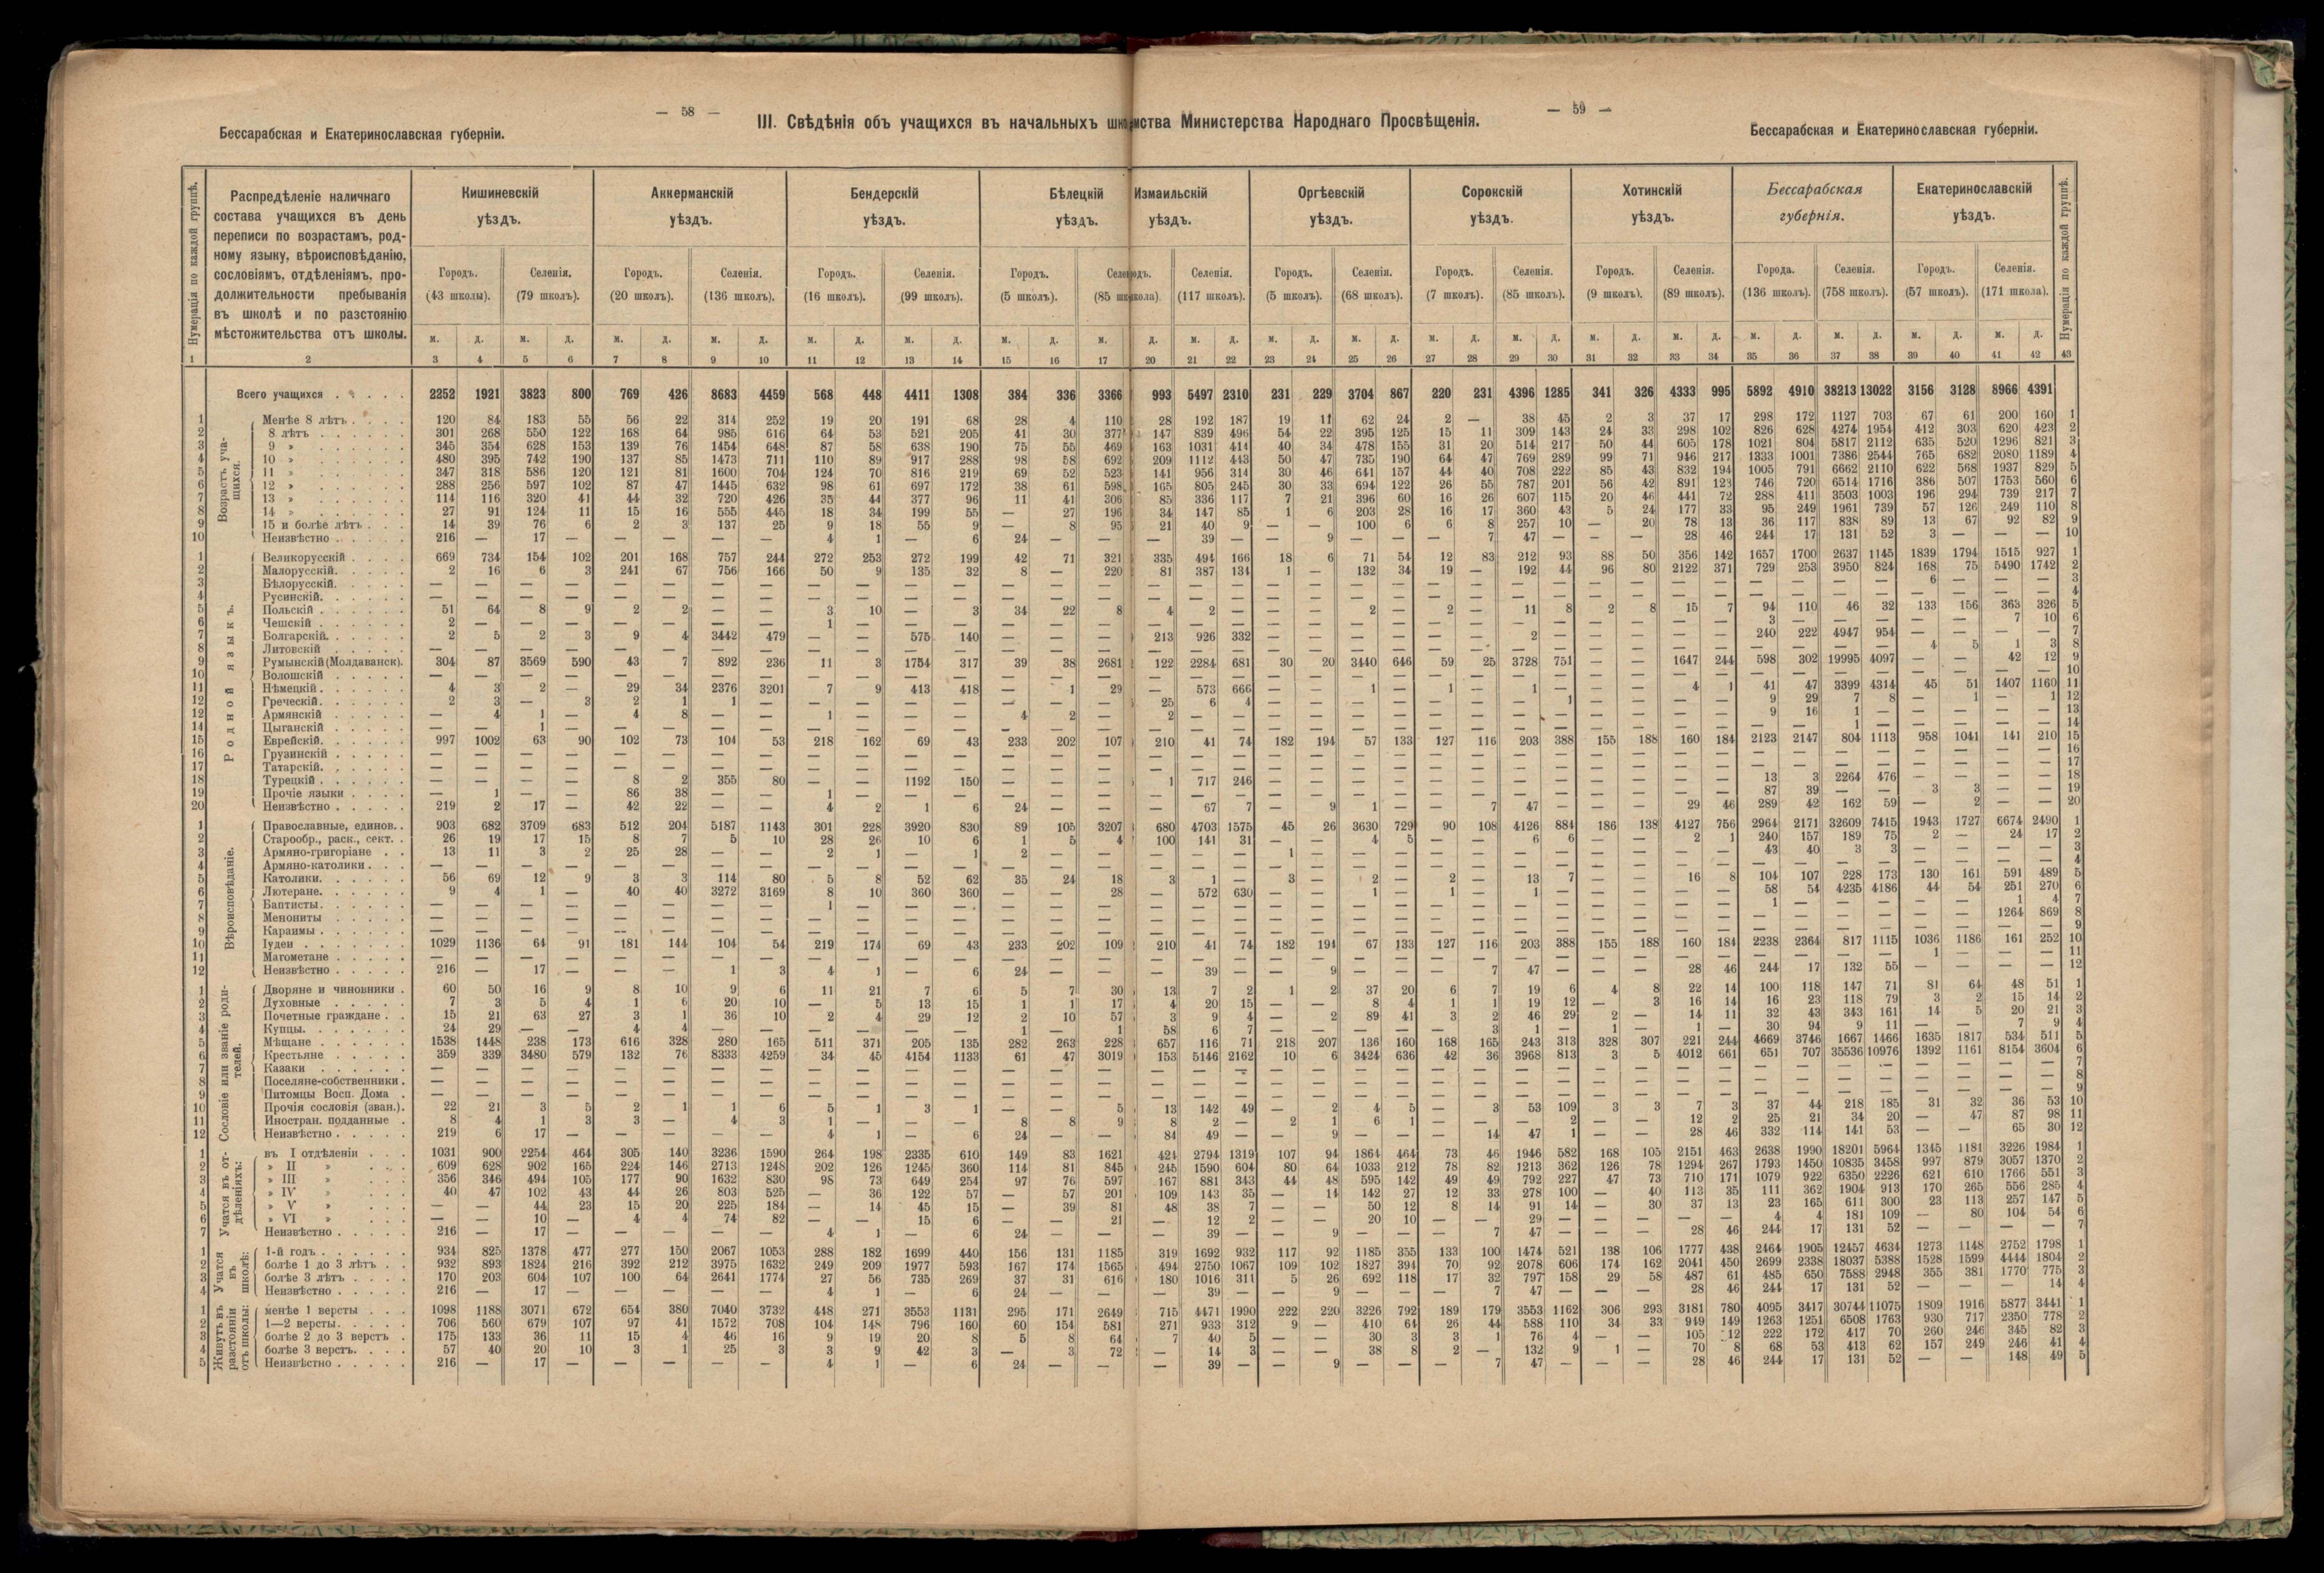 — 58 —
— 59 —
III. Свѣдѣнія объ учащихся въ начальныхъ
мства Министерства Народнаго Просвѣщенія.
Бессарабская и Екатеринославская губерніи.
Бессарабская и Екатеринославская губерніи.
Нумерація по каждой группѣ.
Распредѣленіе наличнаго
состава учащихся въ день
переписи по возрастамъ, род-
ному языку, вѣроисповѣданію,
сословіямъ, отдѣленіямъ, про-
должительности пребыванія
въ школѣ и по разстоянію
мѣстожительства отъ школы.
Кишиневскій уѣздъ. Аккерманскій уѣздъ. Бендерскій уѣздъ. Бѣлецкій уѣздъ. Измаильскій уѣздъ. Оргѣевскій уѣздъ. Сорокскій уѣздъ. Хотинскій уѣздъ. Бессарабская губернія. Екатеринославскій уѣздъ.
Нумерація по каждой группѣ.
Городъ. Селенія. Городъ. Селенія. Городъ. Селенія. Городъ. Селенія. Городъ. Селенія. Городъ. Селенія. Городъ. Селенія. Города. Селенія. Городъ. Селенія.
(43 школы). (79 школъ). (20 школъ). (136 школъ). (16 школъ). (99 школъ). (5 школъ). (85 (117 школъ). (5 школъ). (68 школъ). (7 школъ). (85 школъ). (9 школъ). (89 школъ). (136 школъ). (758 школъ). (57 школъ). (171 школа).
м. д. м. д. м. д. м. д. м. д. м. д. м. д. м. д. м. д. м. д. м. д. м. д. м. д. м. д. м. д. м. д. м. д. м. д. м. д.
1 2 3 4 5 6 7 8 9 10 11 12 13 14 15 16 17 20 21 22 23 24 25 26 27 28 29 30 31 32 33 34 35 36 37 38 39 40 41 42 43
Всего учащихся 2252 1921 3823 800 769 426 8683 4459 568 448 4411 1308 384 336 3366 993 5497 2310 231 229 3704 867 220 231 4396 1285 341 326 4333 995 5892 4910 38213 13022 3156 3128 8966 4391
Возрастъ уча-
щихся.
1 Менѣе 8 лѣтъ 120 84 183 55 56 22 314 252 19 20 191 68 28 4 110 28 192 187 19 11 62 24 2 — 38 45 2 3 37 17 298 172 1127 703 67 61 200 160 1
2 8 лѣтъ 301 268 550 122 168 64 985 616 64 53 521 205 41 30 377 147 839 496 54 22 395 125 15 11 309 143 24 33 298 102 826 628 4274 1954 412 303 620 423 2
3 9 » 345 354 628 153 139 76 1454 648 87 58 638 190 75 55 469 163 1031 414 40 34 478 155 31 20 514 217 50 44 605 178 1021 804 5817 2112 635 520 1296 821 3
4 10 » 480 395 742 190 137 85 1473 711 110 89 917 288 98 58 692 209 1112 443 50 47 735 190 64 47 769 289 99 71 946 217 1333 1001 7386 2544 765 682 2080 1189 4
5 11 » 347 318 586 120 121 81 1600 704 124 70 816 219 69 52 523 141 956 314 30 46 641 157 44 40 708 222 85 43 832 194 1005 791 6662 2110 622 568 1937 829 5
6 12 » 288 256 597 102 87 47 1445 632 98 61 697 172 38 61 598 165 805 245 30 33 694 122 26 55 787 201 56 42 891 123 746 720 6514 1716 386 507 1753 560 6
7 13 » 114 116 320 41 44 32 720 426 35 44 377 96 11 41 306 85 336 117 7 21 396 60 16 26 607 115 20 46 441 72 288 411 3503 1003 196 294 739 217 7
8 14 » 27 91 124 11 15 16 555 445 18 34 199 55 — 27 196 34 147 85 1 6 203 28 16 17 360 43 5 24 177 33 95 249 1961 739 57 126 249 110 8
9 15 и болѣе лѣтъ 14 39 76 6 2 3 137 25 9 18 55 9 — 8 95 21 40 9 — — 100 6 6 8 257 10 — 20 78 13 36 117 838 89 13 67 92 82 9
10 Неизвѣстно 216 — 17 — — — — — 4 1 — 6 24 — — — 39 — — 9 — — — 7 47 — — — 28 46 244 17 131 52 3 — — — 10
Родной языкъ.
1 Великорусскій 669 734 154 102 201 168 757 244 272 253 272 199 42 71 321 335 494 166 18 6 71 54 12 83 212 93 88 50 356 142 1657 1700 2637 1145 1839 1794 1515 927 1
2 Малорусскій 2 16 6 3 241 67 756 166 50 9 135 32 8 — 220 81 387 134 1 — 132 34 19 — 192 44 96 80 2122 371 729 253 3950 824 168 75 5490 1742 2
3 Бѣлорусскій 6 — — — 3
4 Русинскій 4
5 Польскій 51 64 8 9 2 2 — — 3 10 — 3 34 22 8 4 2 — — — 2 — 2 — 11 8 2 8 15 7 94 110 46 32 133 156 363 326 5
6 Чешскій 2 — — — — — — — 1 3 — — — — — 7 10 6
7 Болгарскій 2 5 2 3 9 4 3442 479 — — 575 140 — — — 213 926 332 — — — — — — 2 — — — — — 240 222 4947 954 — — — — 7
8 Литовскій 4 5 1 3 8
9 Румынскій (Молдаванск). 304 87 3569 590 43 7 892 236 11 3 1754 317 39 38 2681 122 2284 681 30 20 3440 646 59 25 3728 751 — — 1647 244 598 302 19995 4097 — — 42 12 9
10 Волошскій 10
11 Нѣмецкій 4 3 2 — 29 34 2376 3201 7 9 413 418 — 1 29 — 573 666 — — 1 — 1 — 1 — — — 4 1 41 47 3399 4314 45 51 1407 1160 11
12 Греческій 2 3 — 3 2 1 1 — — — — — — — — 25 6 4 — — — — — — — 1 — — — — 9 29 7 8 — 1 — 1 12
12 Армянскій — 4 1 — 4 8 — — 1 — — — 4 2 — 2 — — — — — — — — — — — — — — 9 16 1 — — — — — 13
14 Цыганскій — — 1 — — — 1 — — — — — 14
15 Еврейскій 997 1002 63 90 102 73 104 53 218 162 69 43 233 202 107 210 41 74 182 194 57 133 127 116 203 388 155 188 160 184 2123 2147 804 1113 958 1041 141 210 15
16 Грузинскій 16
17 Татарскій 17
18 Турецкій — — — — 8 2 355 80 — — 1192 150 — — — 1 717 246 — — — — — — — — — — — — 13 3 2264 476 — — — — 18
19 Прочіе языки — 1 — — 86 38 — — 1 87 39 — — 3 3 — — 19
20 Неизвѣстно 219 2 17 — 42 22 — — 4 2 1 6 24 — — — 67 7 — 9 1 — — 7 47 — — — 29 46 289 42 162 59 — 2 — — 20
Вѣроисповѣданіе.
1 Православные, единов. 903 682 3709 683 512 204 5187 1143 301 228 3920 830 89 105 3207 680 4703 1575 45 26 3630 729 90 108 4126 884 186 138 4127 756 2964 2171 32609 7415 1943 1727 6674 2490 1
2 Старообр., раск., сект. 26 19 17 15 8 7 5 10 28 26 10 6 1 5 4 100 141 31 — — 4 5 — — 6 6 — — 2 1 240 157 189 75 2 — 24 17 2
3 Армяно-григоріане 13 11 3 2 25 28 — — 2 1 — 1 2 — — — — — 1 — — — — — — — — — — — 43 40 3 3 — — — — 3
4 Армяно-католики 4
5 Католики 56 69 12 9 3 3 114 80 5 8 52 62 35 24 18 3 1 — 3 — 2 — 2 — 13 7 — — 16 8 104 107 228 173 130 161 591 489 5
6 Лютеране 9 4 1 — 40 40 3272 3169 8 10 360 360 — — 28 — 572 630 — — 1 — 1 — 1 — — — — — 58 54 4235 4186 44 54 251 270 6
7 Баптисты 1 1 — — — — — 1 4 7
8 Менониты 1264 869 8
9 Караимы 9
10 Іудеи 1029 1136 64 91 181 144 104 54 219 174 69 43 233 202 109 210 41 74 182 194 67 133 127 116 203 388 155 188 160 184 2238 2364 817 1115 1036 1186 161 252 10
11 Магометане 1 — — — 11
12 Неизвѣстно 216 — 17 — — — 1 3 4 1 — 6 24 — — — 39 — — 9 — — — 7 47 — — — 28 46 244 17 132 55 — — — — 12
Сословіе или званіе роди-
телей.
1 Дворяне и чиновники 60 50 16 9 8 10 9 6 11 21 7 6 5 7 30 13 7 2 1 2 37 20 6 7 19 6 4 8 22 14 100 118 147 71 81 64 48 51 1
2 Духовные 7 3 5 4 1 6 20 10 — 5 13 15 1 1 17 4 20 15 — — 8 4 1 1 19 12 — 3 16 14 16 23 118 79 3 2 15 14 2
3 Почетные граждане 15 21 63 27 3 1 36 10 2 4 29 12 2 10 57 3 9 4 — 2 89 41 3 2 46 29 2 — 14 11 32 43 343 161 14 5 20 21 3
4 Купцы 24 29 — — 4 4 — — — — — — 1 — 1 58 6 7 — — — — — 3 1 — 1 — 1 — 30 94 9 11 — — 7 9 4
5 Мѣщане 1538 1448 238 173 616 328 280 165 511 371 205 135 282 263 228 657 116 71 218 207 136 160 168 165 243 313 328 307 221 244 4669 3746 1667 1466 1635 1817 534 511 5
6 Крестьяне 359 339 3480 579 132 76 8333 4259 34 45 4154 1133 61 47 3019 153 5146 2162 10 6 3424 636 42 36 3968 813 3 5 4012 661 651 707 35536 10976 1392 1161 8154 3604 6
7 Казаки 7
8 Поселяне-собственники 8
9 Питомцы Восп. Дома 9
10 Прочія сословія (зван.). 22 21 3 5 2 1 1 6 5 1 3 1 — — 5 13 142 49 — 2 4 5 — 3 53 109 3 3 7 3 37 44 218 185 31 32 36 53 10
11 Иностран. подданные 8 4 1 3 3 — 4 3 1 — — — 8 8 9 8 2 — 2 1 6 1 — — — 2 — — 12 2 25 21 34 20 — 47 87 98 11
12 Неизвѣстно 219 6 17 — — — — — 4 1 — 6 24 — — 84 49 — — 9 — — — 14 47 1 — — 28 46 332 114 141 53 — — 65 30 12
Учатся въ от-
дѣленіяхъ:
1 въ I отдѣленіи 1031 900 2254 464 305 140 3236 1590 264 198 2335 610 149 83 1621 424 2794 1319 107 94 1864 464 73 46 1946 582 168 105 2151 463 2638 1990 18201 5964 1345 1181 3226 1984 1
2 » II » 609 628 902 165 224 146 2713 1248 202 126 1245 360 114 81 845 245 1590 604 80 64 1033 212 78 82 1213 362 126 78 1294 267 1793 1450 10835 3458 997 879 3057 1370 2
3 » III » 356 346 494 105 177 90 1632 830 98 73 649 254 97 76 597 167 881 343 44 48 595 142 49 49 792 227 47 73 710 171 1079 922 6350 2226 621 610 1766 551 3
4 » IV » 40 47 102 43 44 26 803 525 — 36 122 57 — 57 201 109 143 35 — 14 142 27 12 33 278 100 — 40 113 35 111 362 1904 913 170 265 556 285 4
5 » V » — — 44 23 15 20 225 184 — 14 45 15 — 39 81 48 38 7 — — 50 12 8 14 91 14 — 30 37 13 23 165 611 300 23 113 257 147 5
6 » VI » — — 10 — 4 4 74 82 — — 15 6 — — 21 — 12 2 — — 20 10 — — 29 — — — — — 4 4 181 109 — 80 104 54 6
7 Неизвѣстно 216 — 17 — — — — — 4 1 — 6 24 — — — 39 — — 9 — — — 7 47 — — — 28 46 244 17 131 52 — — — — 7
Учатся
въ
школѣ:
1 1-й годъ 934 825 1378 477 277 150 2067 1053 288 182 1699 440 156 131 1185 319 1692 932 117 92 1185 355 133 100 1474 521 138 106 1777 438 2464 1905 12457 4634 1273 1148 2752 1798 1
2 болѣе 1 до 3 лѣтъ 932 893 1824 216 392 212 3975 1632 249 209 1977 593 167 174 1565 494 2750 1067 109 102 1827 394 70 92 2078 606 174 162 2041 450 2699 2338 18037 5388 1528 1599 4444 1804 2
3 болѣе 3 лѣтъ 170 203 604 107 100 64 2641 1774 27 56 735 269 37 31 616 180 1016 311 5 26 692 118 17 32 797 158 29 58 487 61 485 650 7588 2948 355 381 1770 775 3
4 Неизвѣстно 216 — 17 — — — — — 4 1 — 6 24 — — — 39 — — 9 — — — 7 47 — — — 28 46 244 17 131 52 — — — 14 4
Живутъ въ
разстояніи
отъ школы:
1 менѣе 1 версты 1098 1188 3071 672 654 380 7040 3732 448 271 3553 1131 295 171 2649 715 4471 1990 222 220 3226 792 189 179 3553 1162 306 293 3181 780 4095 3417 30744 11075 1809 1916 5877 3441 1
2 1—2 версты 706 560 679 107 97 41 1572 708 104 148 796 160 60 154 581 271 933 312 9 — 410 64 26 44 588 110 34 33 949 149 1263 1251 6508 1763 930 717 2350 778 2
3 болѣе 2 до 3 верстъ 175 133 36 11 15 4 46 16 9 19 20 8 5 8 64 7 40 5 — — 30 3 3 1 76 4 — — 105 12 222 172 417 70 260 246 345 82 3
4 болѣе 3 верстъ 57 40 20 10 3 1 25 3 3 9 42 3 — 3 72 — 14 3 — — 38 8 2 — 132 9 1 — 70 8 68 53 413 62 157 249 246 41 4
5 Неизвѣстно 216 — 17 — — — — — 4 1 — 6 24 — — — 39 — — 9 — — — 7 47 — — — 28 46 244 17 131 52 — — 148 49 5